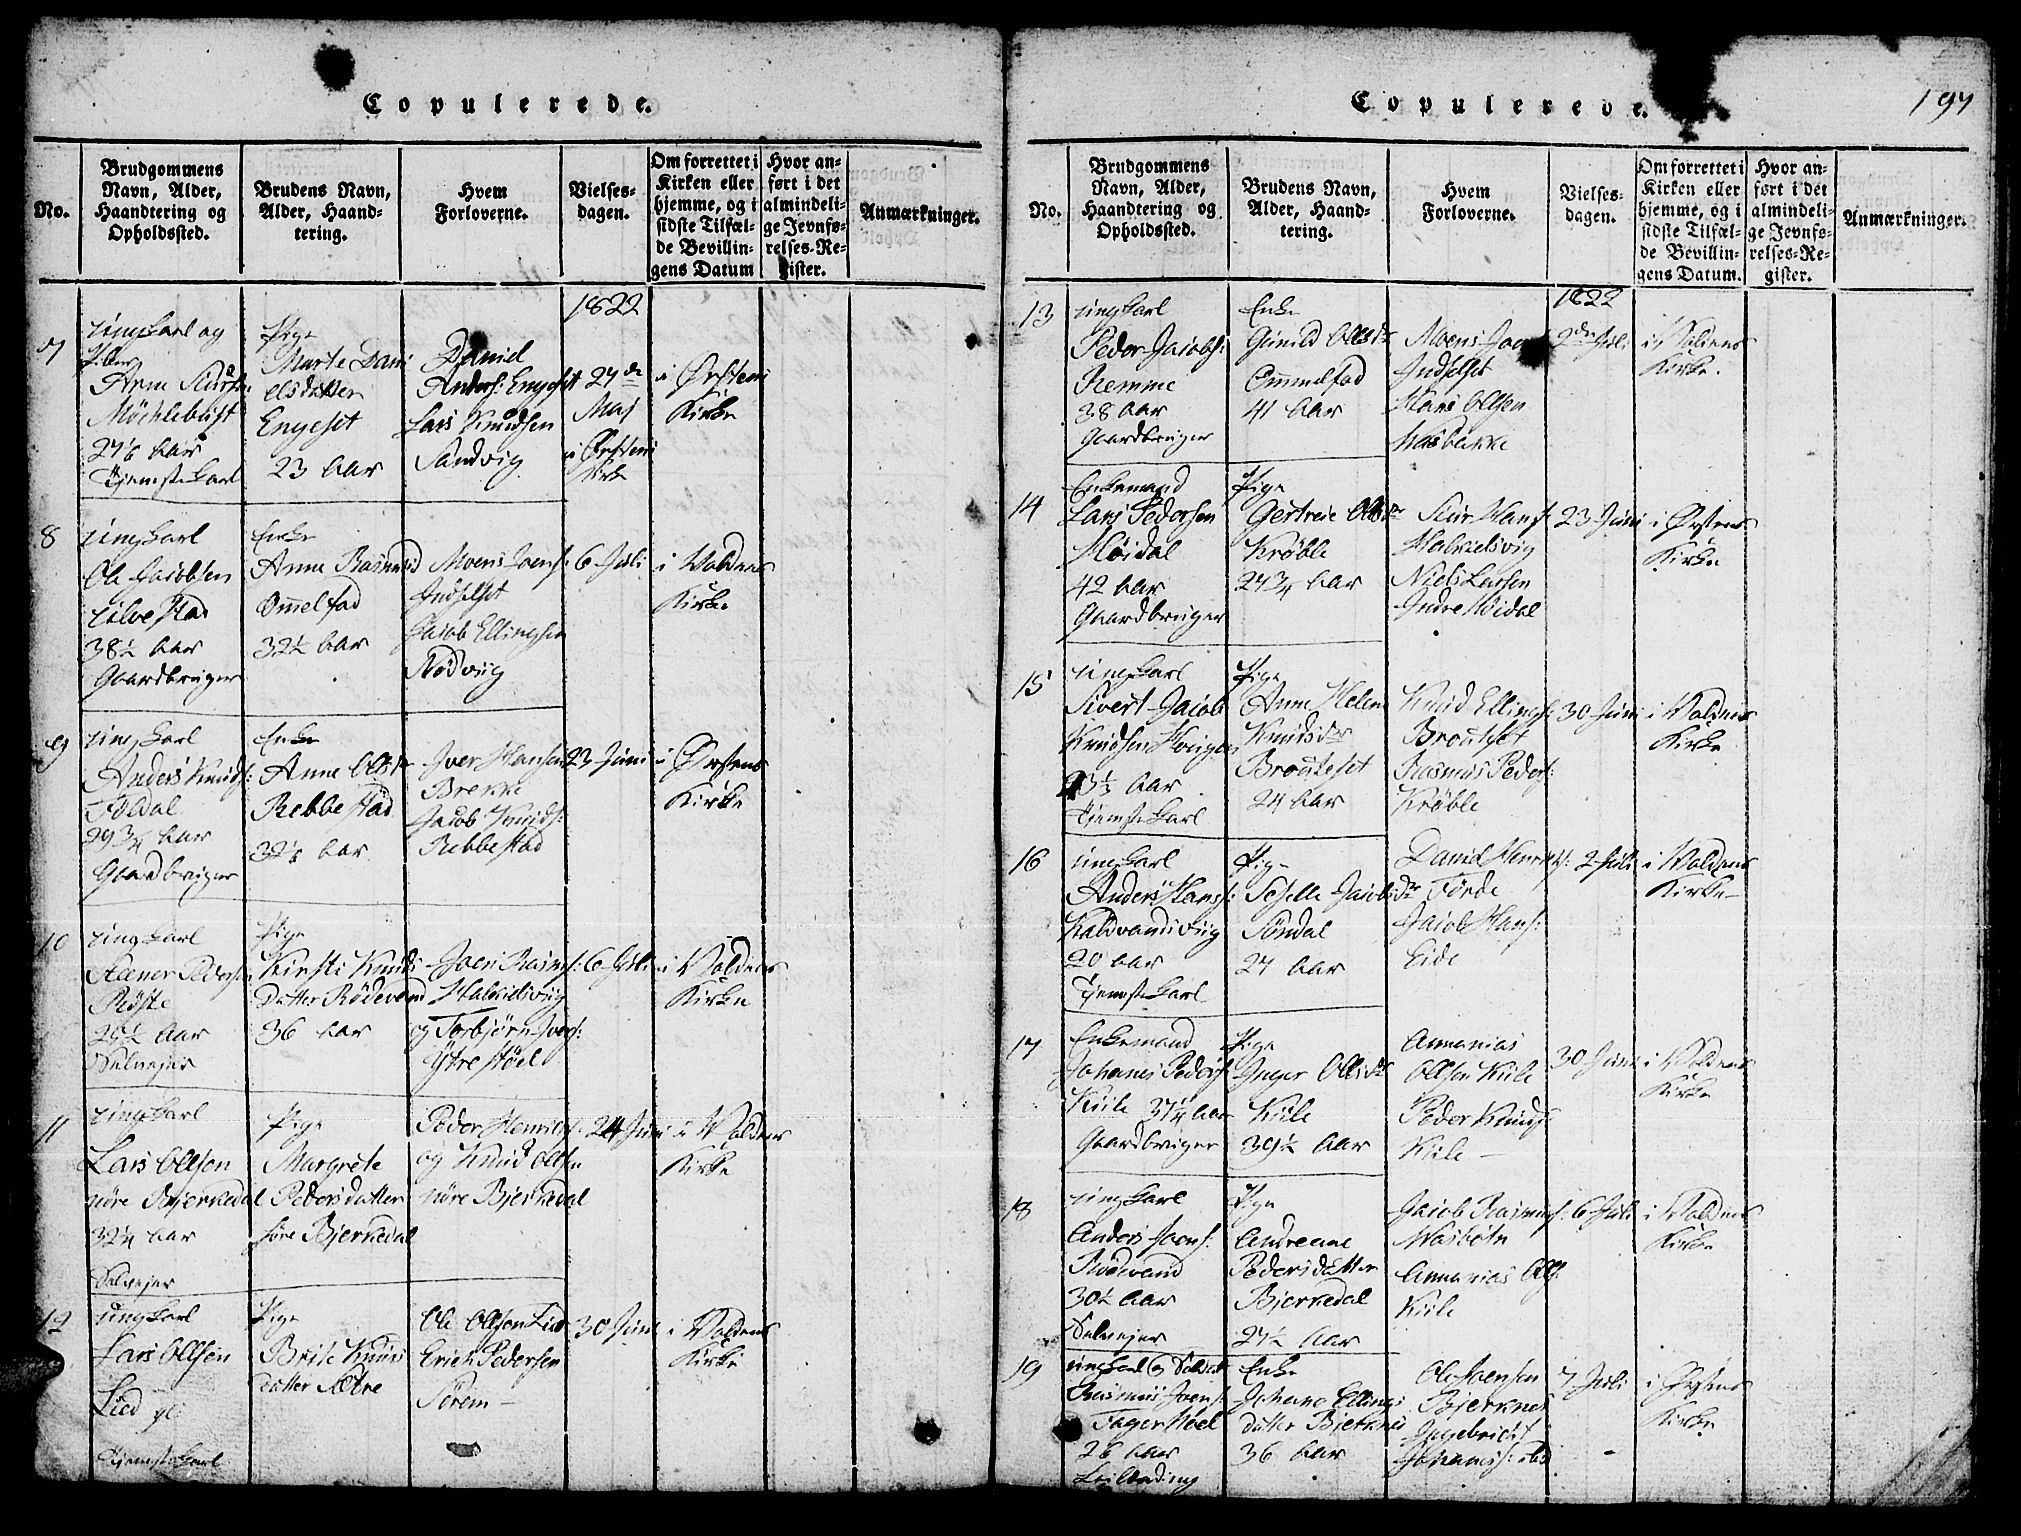 Copulerede.
No.
Brudgommens
Navn, Alder,
Haandtering og
Opholdssted.
Brudens Navn,
Alder, Haand-
tering.
Hvem
Forloverne.
Vielses-
dagen.
Om forrettet i
Kirken eller
hjemme, og i
sidste Tilfæl-
de Bevillin-
gens Datum
Hvor an-
ført i det
almindeli-
ge Jevnfø-
relses-Re-
gister.
Anmærkninger.
1822
7
Ungkarl og
Arne
Möchlebust
27 Aar
Tjenstekarl
Pige
Marte Dani
elsdatter
Engeset
23 Aar
Daniel
Anders: Engeset
Lars Knudsen
Sandvig
27de
Maj
i Örsten
Kirke
i Örsten
Kirke
8
Ungkarl
Ole Jacobsen
38½ Aar
Gaardbruger
Enke
Anne Rasmusd
Ommelfad
32½ Aar
Moens Joens:
Indselset
Jacob Ellingsen
Rödviig
6 Juli
i Voldens
Kirke
9
Ungkarl
Anders Knuds:
Foldal
29¾ Aar
Gaardbruger
Enke
Anne Olsdr
Rebbestad
32 Aar
Iver Hansen
Brekke
Jacob Knuds:
Rebbestad
23 Juni
i Örstens
Kirke
10
Ungkarl
Steener Pedersen
Röste
29½ Aar
Selvejer
Pige
Kirsti Knuds
Datter Rödevand
36 Aar
Joen Rasmus:
Halkielsviig
og Torbjörn Ivers:
Ytrestöel
6 Juli
i Voldens
Kirke
11
Ungkarl
Lars Ollsen
nöre Bjerkedal
32¼ Aar
Selvejer
Pige
Margrete
Pedersdatter
söre Bjerkedal
Peder Henriks:
og Knud Olsen
nöre Bjerkedal
24 Juni
i Voldens
Kirke
12
Ungkarl
Lars Ollsen
Lied
Tjenstekarl
Pige
Brite Knuds
datter Sætre
Ole Ollsen Lied
Erich Pedersen
Sörem
30 Juni
i Voldens
Kirke
Copulerede.
197
No.
Brudgommens
Navn, Alder,
Haandtering og
Opholdssted.
Brudens Navn,
Alder, Haand-
tering.
Hvem
Forloverne.
Vielses-
dagen.
Om forrettet i
Kirken eller
hjemme, og i
sidste Tilfæl-
de Bevillin-
gens Datum.
Hvor an-
ført i det
almindeli-
ge Jevnfø-
relses-Re-
gister.
Anmærkninger.
1822
13
Ungkarl
Peder Jacobs:
Remme
38 Aar
Gaardbruger
Enke
Gunild Olsdr
Ommelfad
41 Aar
Moens Joens
Indselset
Hans Ollsen
Aasbakke
2den Juli
i Voldens
Kirke.
14
Enkemand
Lars Pedersen
Möidal
42 Aar
Gaardbruger
Pige
Gertrue Olsdr
Kröble
27¾ Aar
Siur Hans:
Halkielsvig
Niels Larsen
Indre Möidal
23 Juni
i Örstens
Kirke
15
Ungkarl
Sivert Jacob
Knudsen
23⅓ Aar
Tjenstekarl
Pige
Anne Helene
Knudsdr
Brouteset
24 Aar
Knud Ellings:
Broutset
Rasmus Peders:
Kröble
30 Juni
i Voldens
Kirke
16
Ungkarl
Anders Hans:
Kaldvandsviig
20 Aar
Tjenstekarl
Pige
Seselle Jacobsdr
Söndal
27 Aar
David Henriks:
Förde
Jacob Hans:
Eide
2 Juli
i Voldens
Kirke
17
Enkemand
Johanes Peders:
Kiile 37¼ Aar
Gaardbruger
Pige
Inger Ollsdr
Kiile
39½ Aar
Annanias
Ollsen Kiile
Peder Knuds:
Kiile
30 Juni
i Voldens
Kirke
18
Ungkarl
Anders Joens:
Rödevand
30½ Aar
Selvejer
Pige
Andreane
Pedersdatter
Bjerkedal
27½ Aar
Jacob Rasmus:
Aasbötn
Annanias Ols:
Kiile
6 Juli
i Voldens
Kirke
19
Ungkarl og Soldat
Rasmus Joens:
26 Aar
Leilending
Enke
Johane Ellings
datter Bjerknes
36 Aar
Ole Joensen
Bjerknes
Ingebricht
Johanes: ibd
7 Juli
i Örstens
Kirke